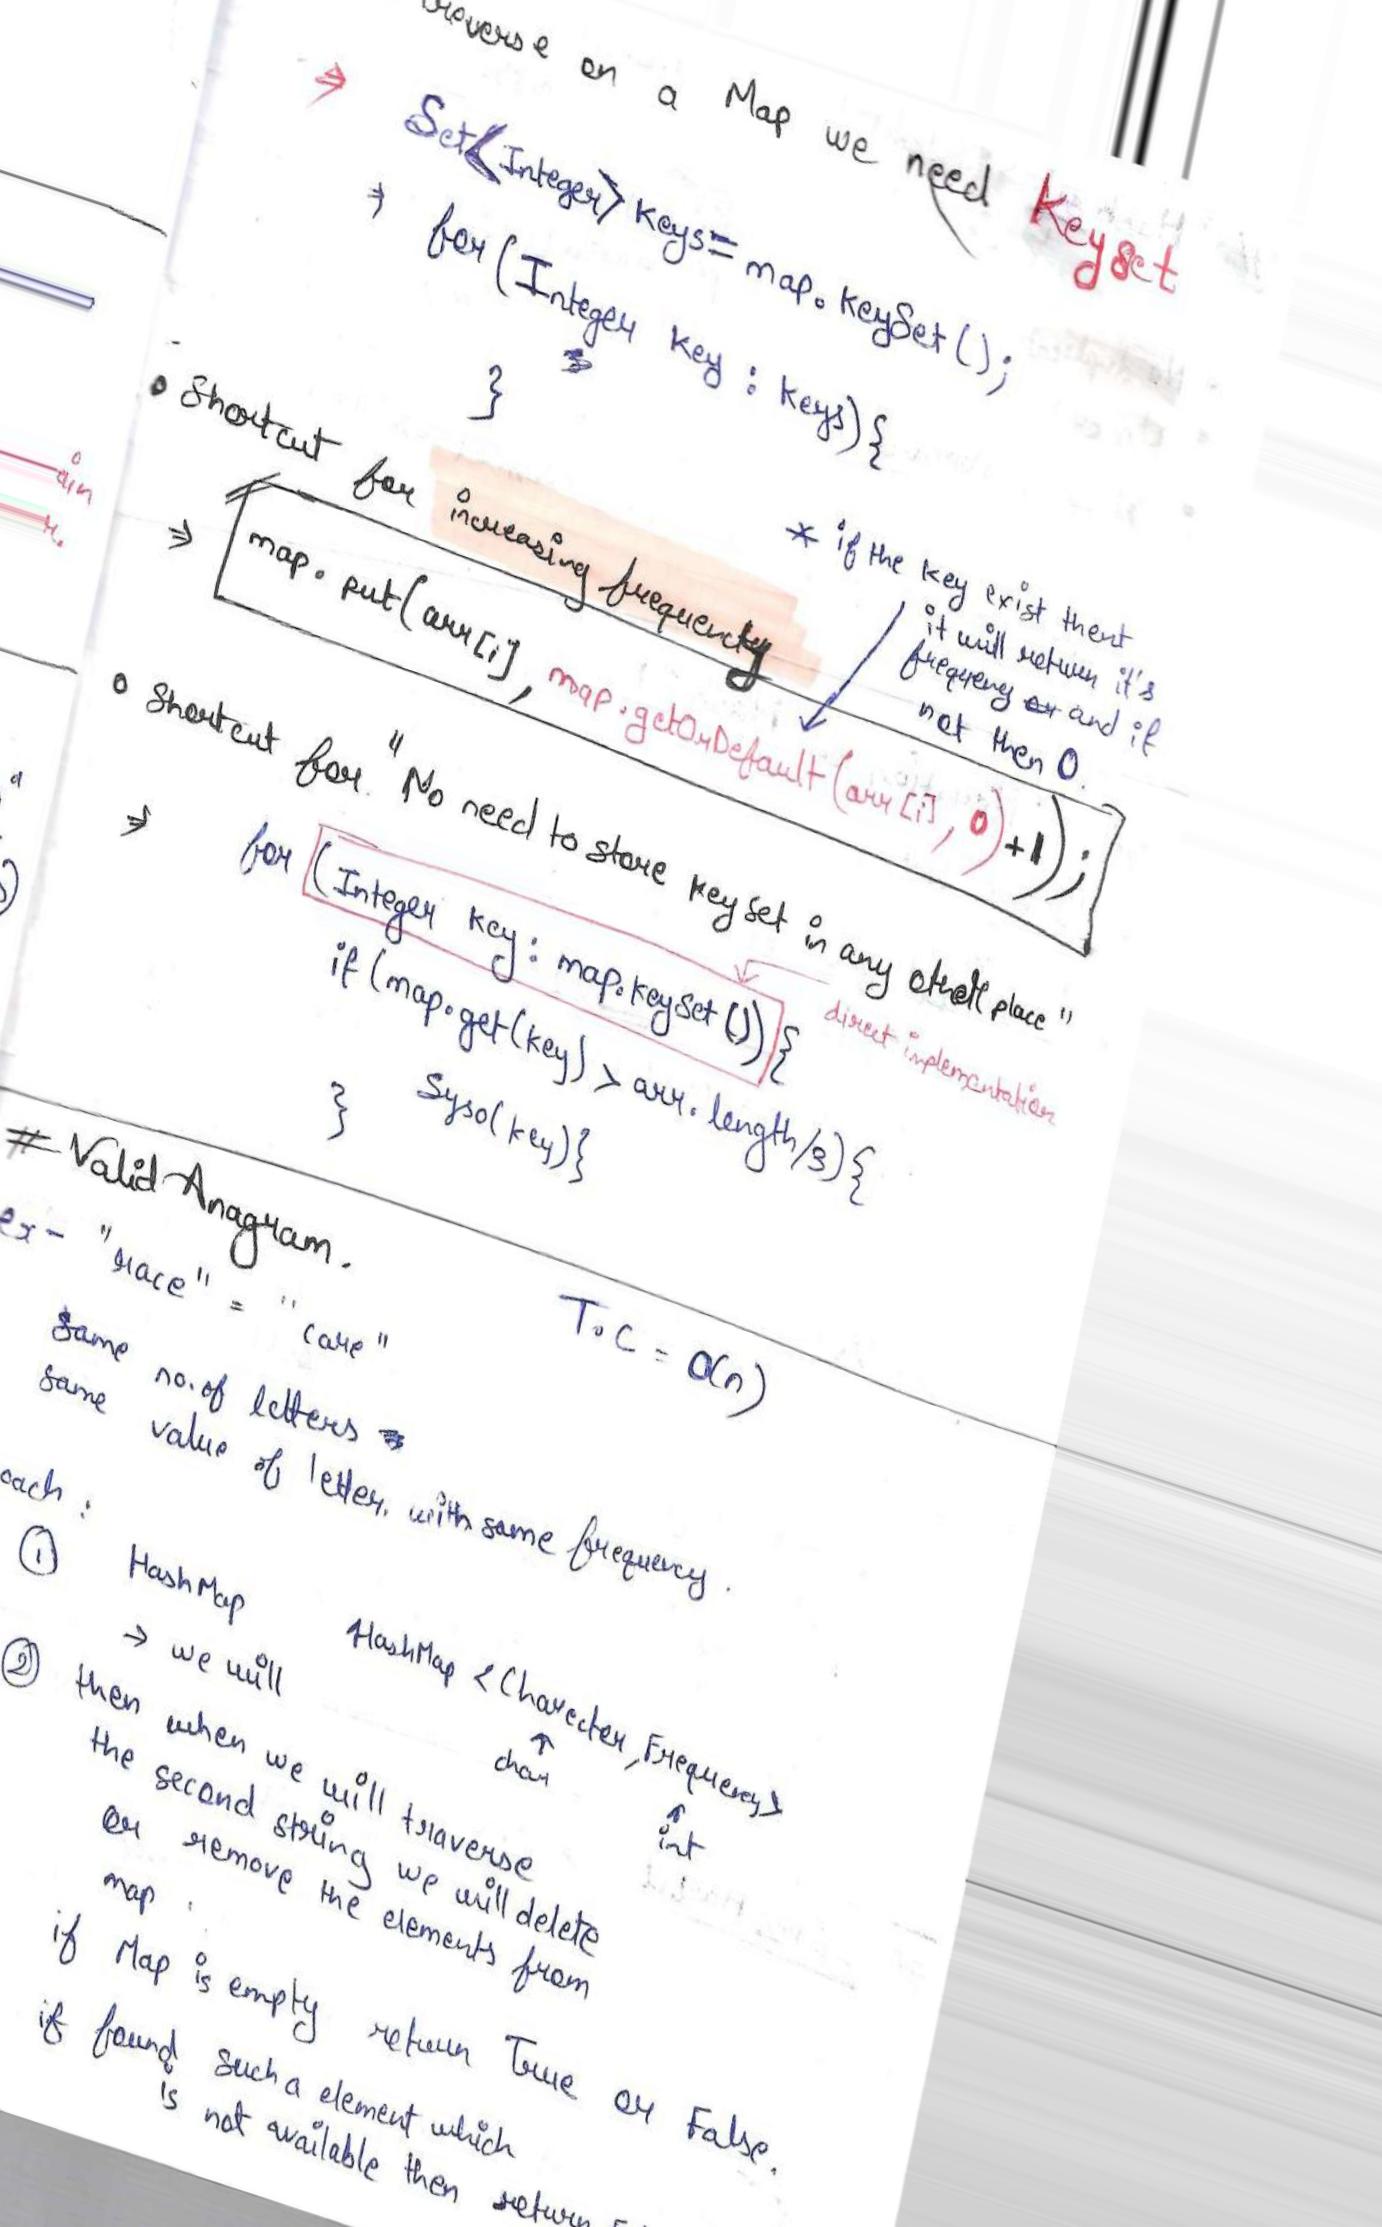 on a Map we need Keyset
⇒ Set<Integer> Keys = map.KeySet();
⇒ for (Integer Key : Keys) {
}
• Shortcut for increasing frequency
* if the Key exist then
it will return it's
frequeny and if
not then 0.
⇒ map.put(arr[i], map.getOrDefault(arr[i], 0) + 1);
• Shortcut for "No need to store Keyset in any other place"
⇒ for (Integer Key : map.KeySet()) {
direct implementation
if (map.get(Key) > arr.length/3) {
Syso(Key) }
}
# Valid Anagram.
ex- "race" = "care"
T.C = O(n)
same no. of letters
same value of letter. with same frequency.
①
HashMap
HashMap <Charecter, Frequency>
→ we will
char
int
② then when we will traverse
the second string we will delete
or remove the elements from
map.
if Map is empty return True or False.
if found such a element which
is not available then return